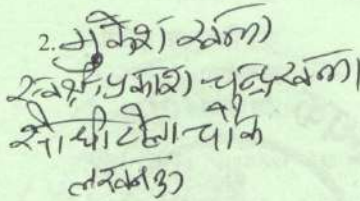 2. मुकेश खन्ना
स्व० श्री प्रकाश चन्द्र खन्ना
सोंधी टोला चौक
लखनऊ